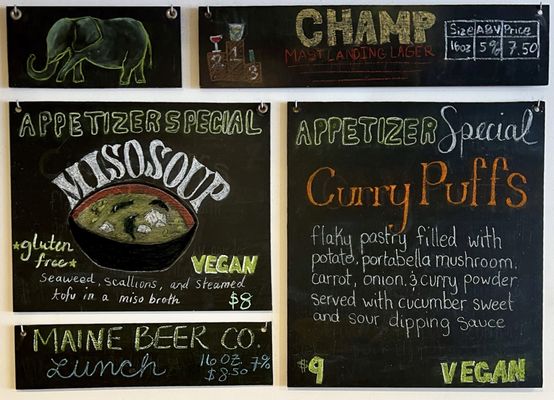 CHAMP
MAST LANDING LAGER
Size ABV Price
16oz 5% 7.50
1
2
3
APPETIZER SPECIAL
MISO SOUP
*gluten
free*
VEGAN
seaweed, scallions, and steamed
tofu in a miso broth
$8
MAINE BEER CO.
Lunch
16 OZ. 7%
$8.50
APPETIZER Special
Curry Puffs
flaky pastry filled with
potato, portabella mushroom,
carrot, onion, & curry powder.
served with cucumber sweet
and sour dipping sauce
$9
VEGAN